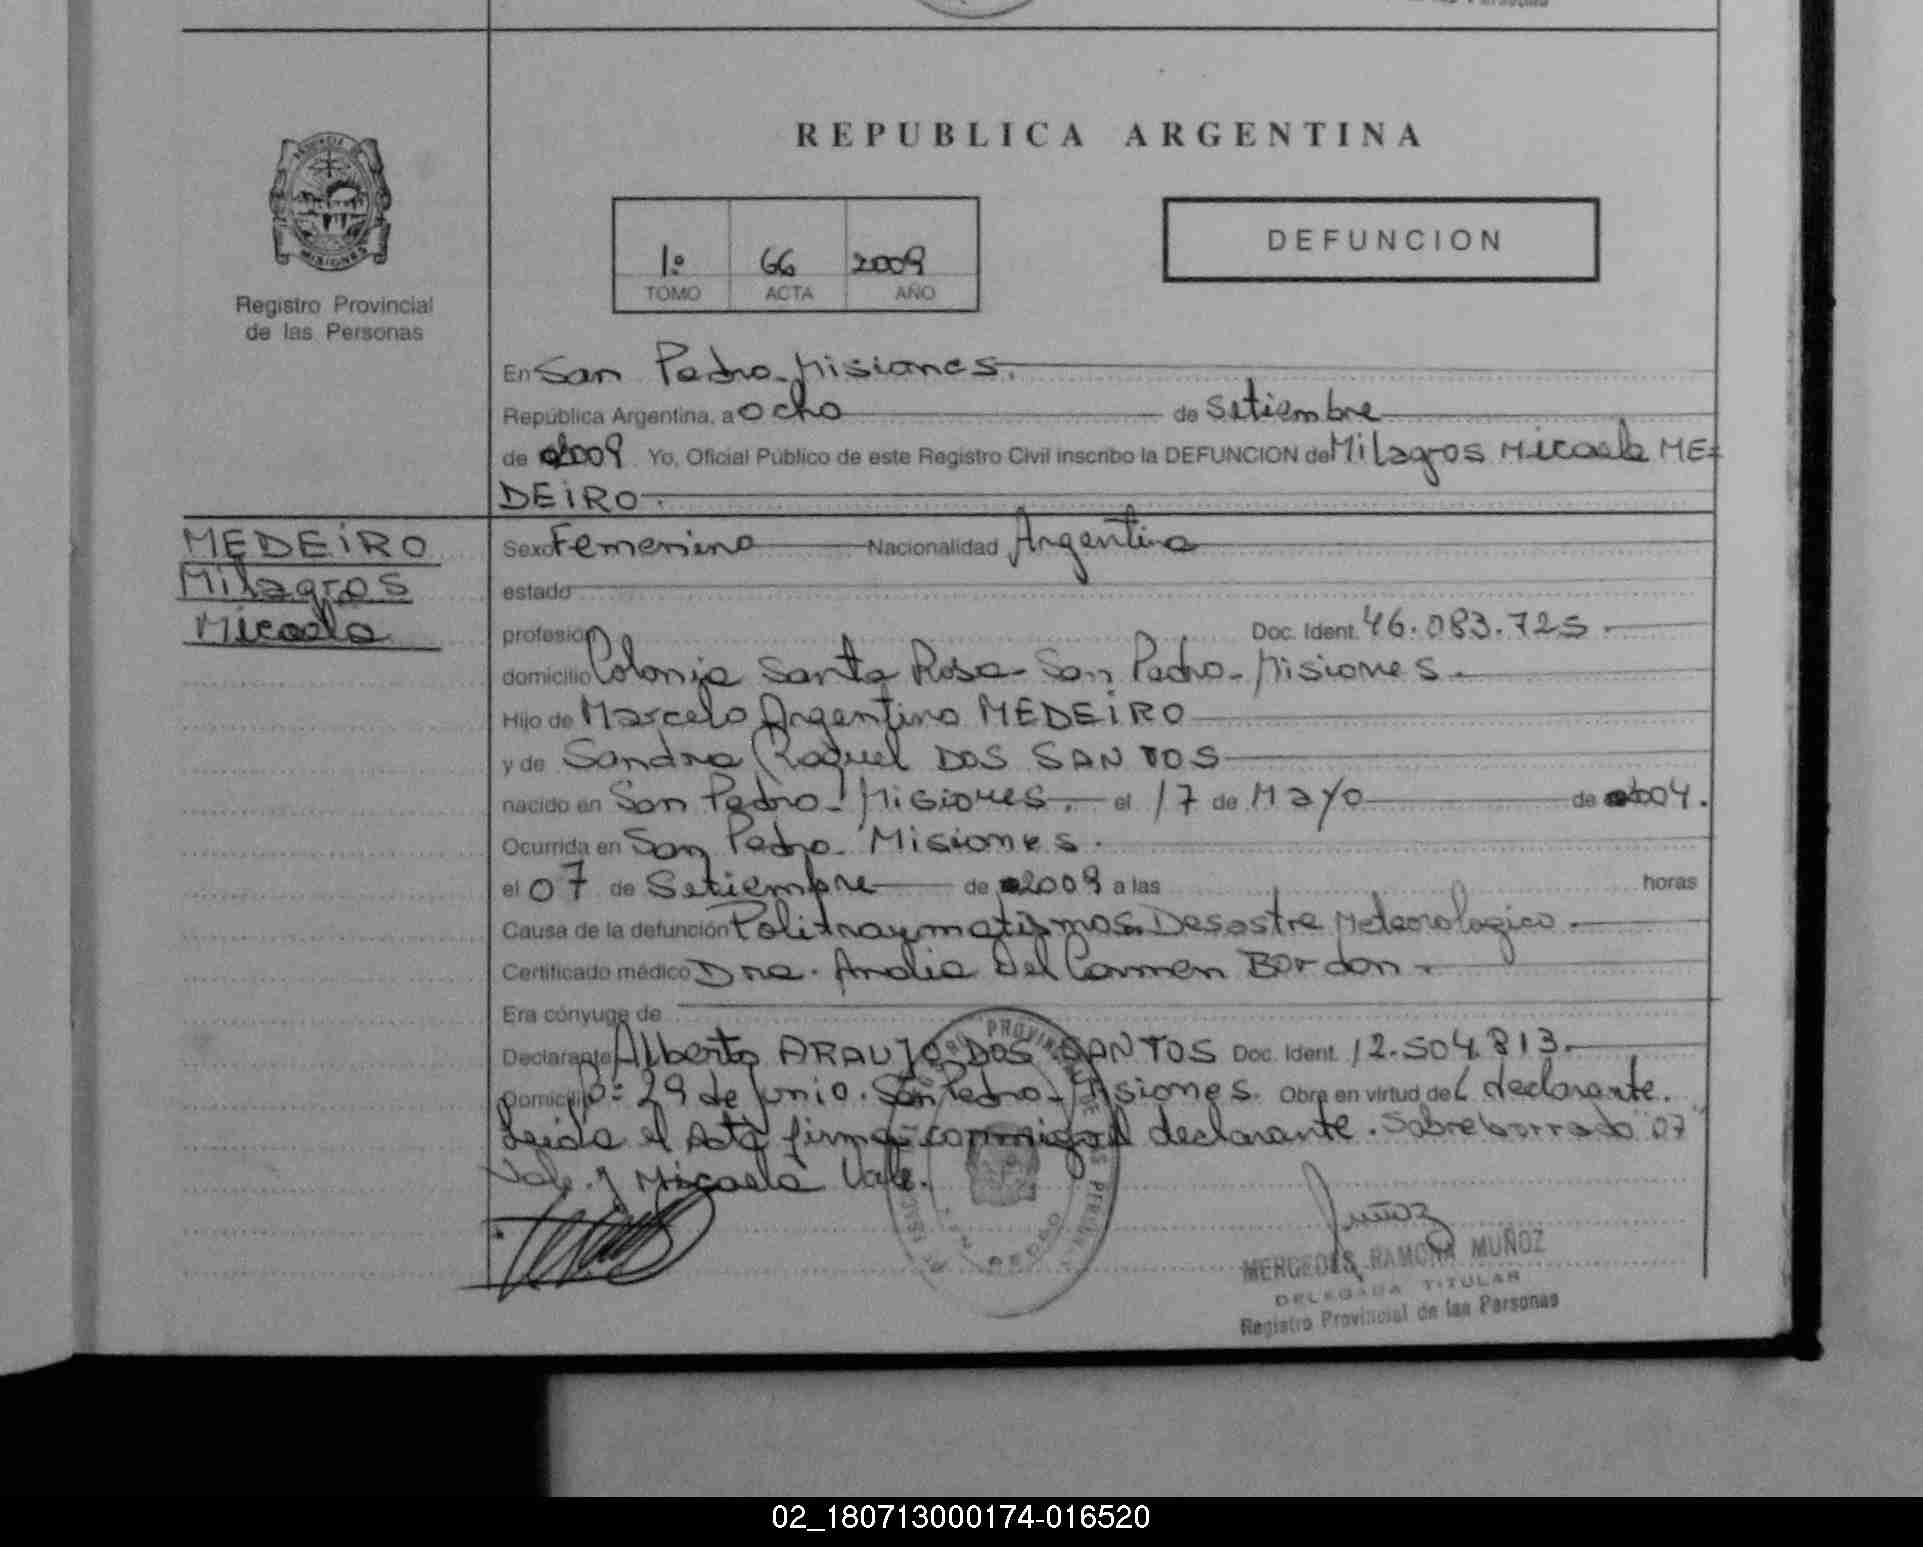 REPUBLICA ARGENTINA
PROVINCIA DE
MISIONES
Registro Provincial
de las Personas
1º 66 2009
TOMO ACTA AÑO
DEFUNCION
En San Pedro-Misiones.
República Argentina, a ocho de Setiembre
de 2009 Yo, Oficial Público de este Registro Civil inscribo la DEFUNCION de Milagros Micaela ME=
DEiRO.
MEDEiRO
Milagros
Micaela
Sexo Femenino Nacionalidad Argentina
estado
profesión Doc. Ident. 46.083.725.
domicilio Colonia Santa Rosa-San Pedro-Misiones.
Hijo de Marcelo Argentino MEDEiRO
y de Sandra Raquel DOS SANTOS
nacido en San Pedro-Misiones. el 17 de Mayo de 2004.
Ocurrida en San Pedro-Misiones.
el 07 de Setiembre de 2009 a las horas
Causa de la defunción Politraumatismos. Desastre Meteorologico.
Certificado médico Dra. Analia Del Carmen Bordon.
Era cónyuge de
Declarante Alberto ARAUJO DOS SANTOS Doc. Ident. 12.504.813.
Domicilio Bº 29 de Junio. San Pedro-Misiones. Obra en virtud de declarante.
Leida el Acta firma conmigo el declarante. Sobreborrado "07"
Vale. y Micaela Vale.
Muñoz
MERCEDES RAMONA MUÑOZ
DELEGADA TITULAR
Registro Provincial de las Personas
02_180713000174-016520